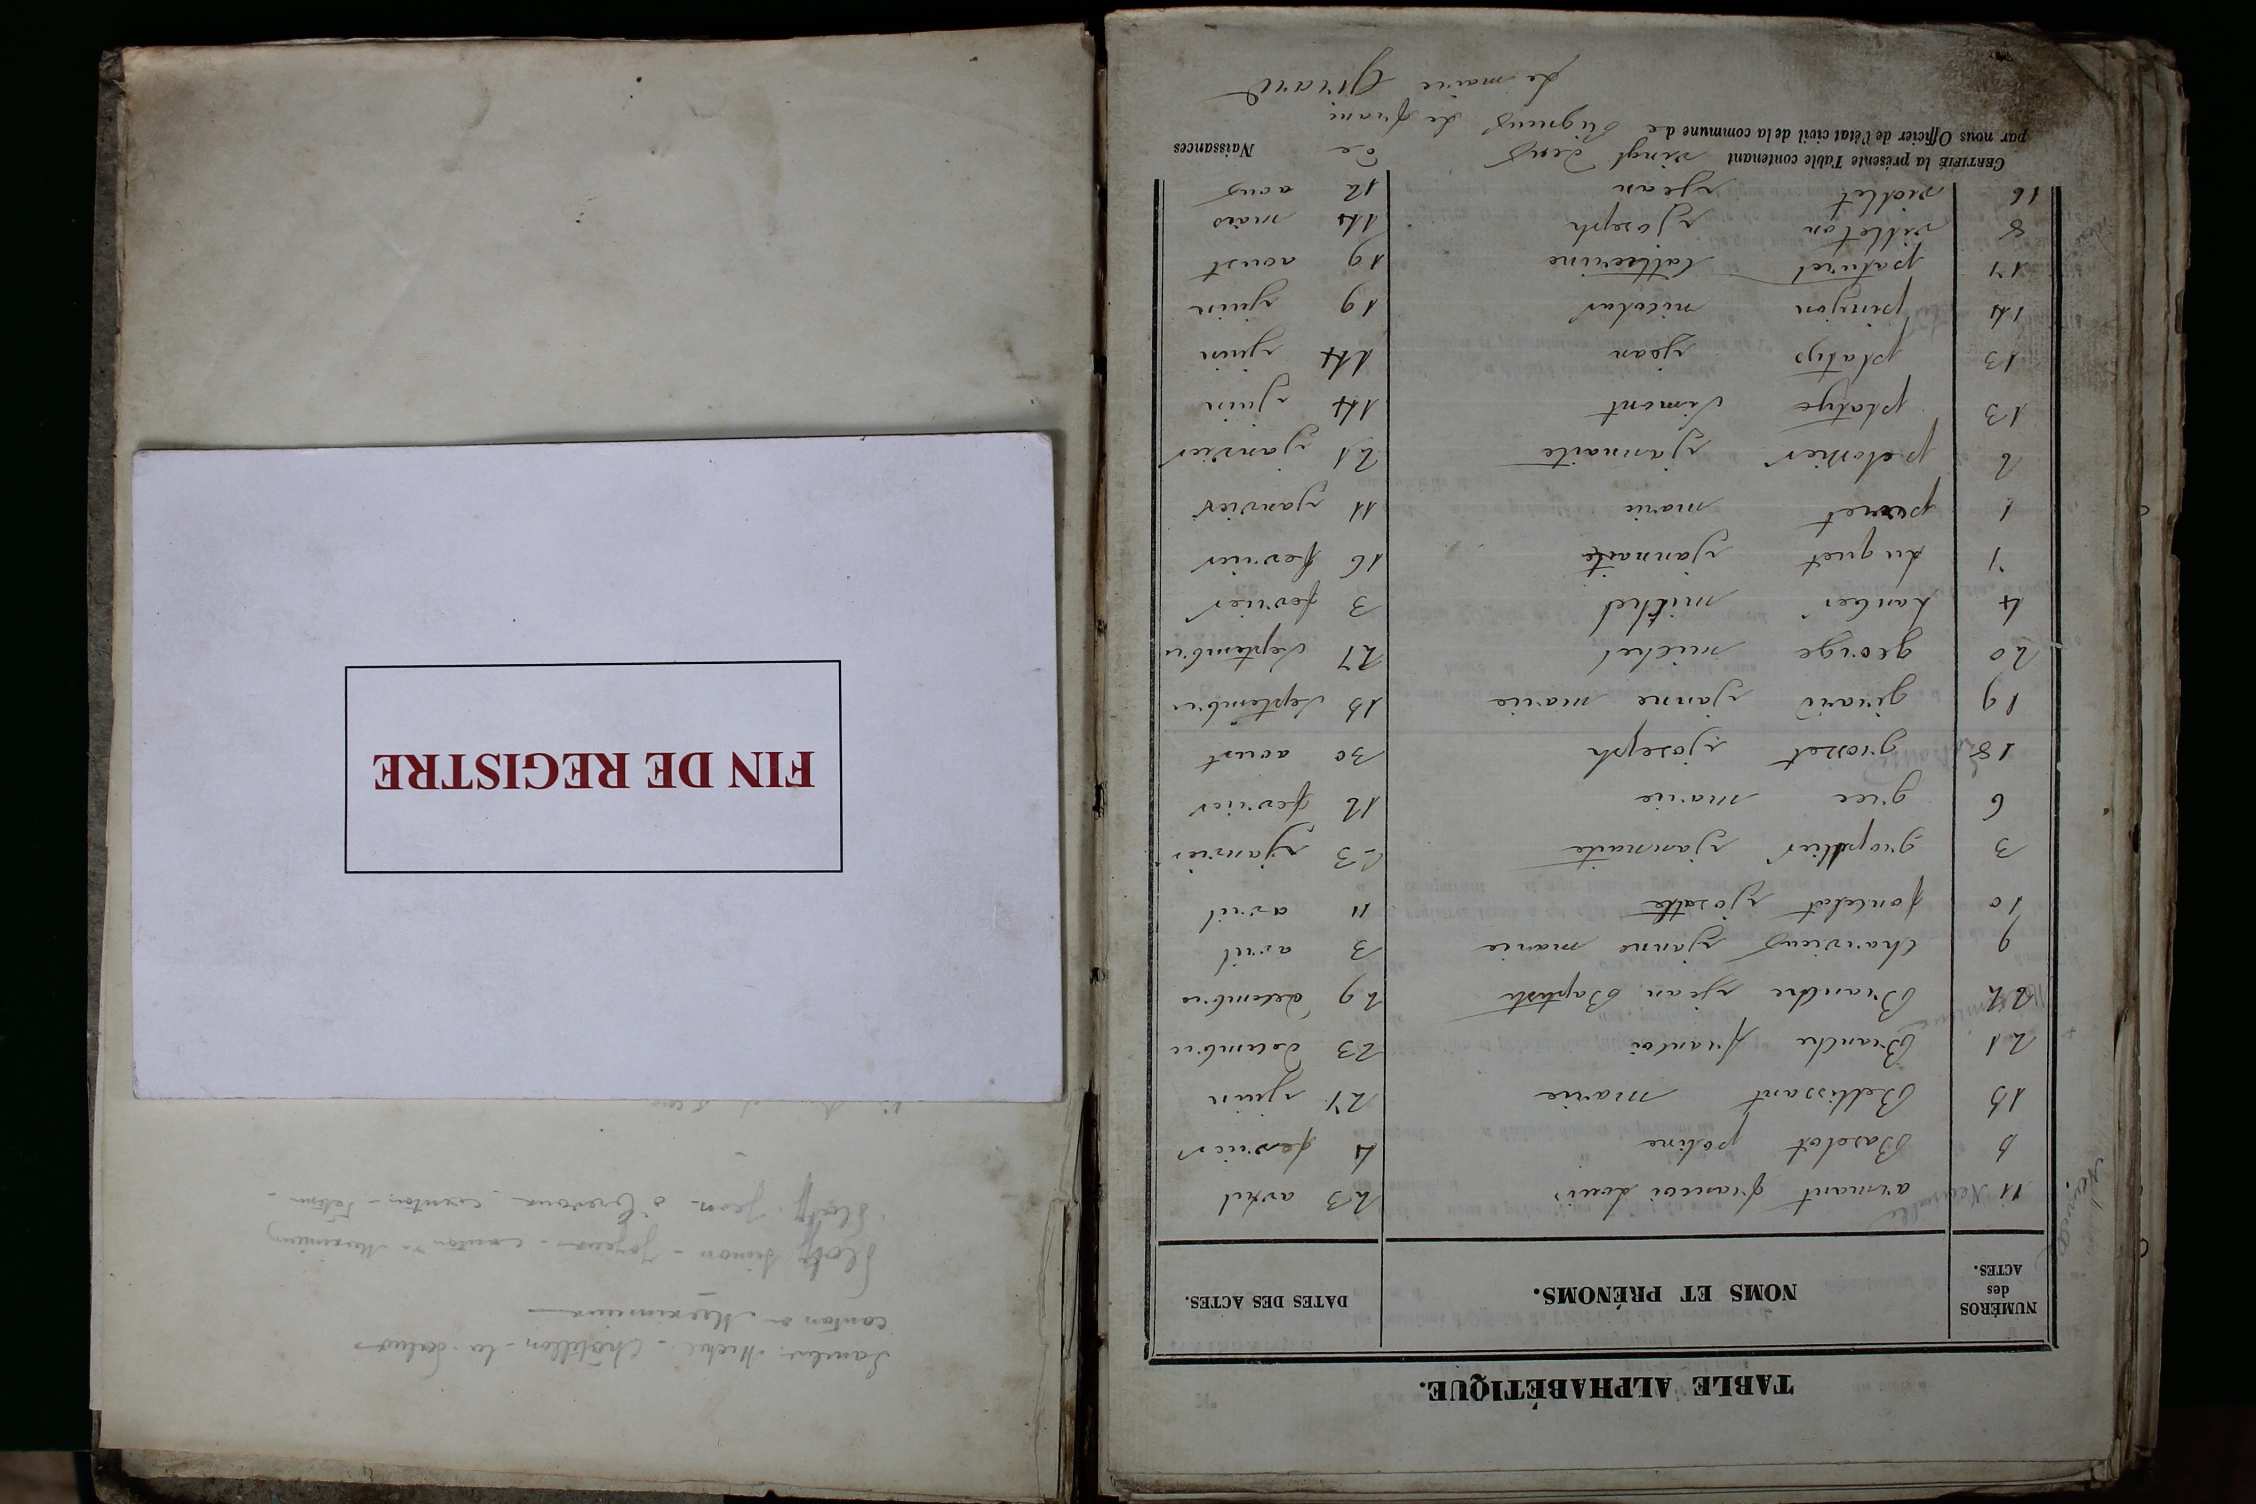 TABLE ALPHABÉTIQUE.
NUMÉROS des ACTES. NOMS ET PRÉNOMS. DATES DES ACTES.
11 armant francoi louis 23 avril
5 Baselot poline 4 fevrier
15 Bellissant marie 27 juin
21 Branche francoi 23 decembre
22 Branche jean Baptiste 29 decembre
9 Charvieux janne marie 3 avril
10 poncelot 11 avril
3 gropellier jannaite 23 janvier
6 gree marie 12 fevrier
18 grosset joseph 30 aoust
19 girard janne marie 15 septembre
20 george michel 27 septembre
4 michel 3 fevrier
7 luquet jannaite 16 fevrier
1 marie 11 janvier
2 pelossier jannaite 21 janvier
13 platys simont 14 juin
13 platys jean 14 juin
14 pinjon nicolas 19 juin
17 paturel Catherine 19 aoust
8 villeton joseph 14 mars
16 violet jean 12 aous
CERTIFIÉ la présente Table contenant vingt deux de Naissances
par nous Officier de l'état civil de la commune de Rigneux le franc
Le maire Girard
FIN DE REGISTRE
Michel - Châtillon - la
canton de Meximieux
Simon - Joyeux - canton de Meximieux
Jean - canton